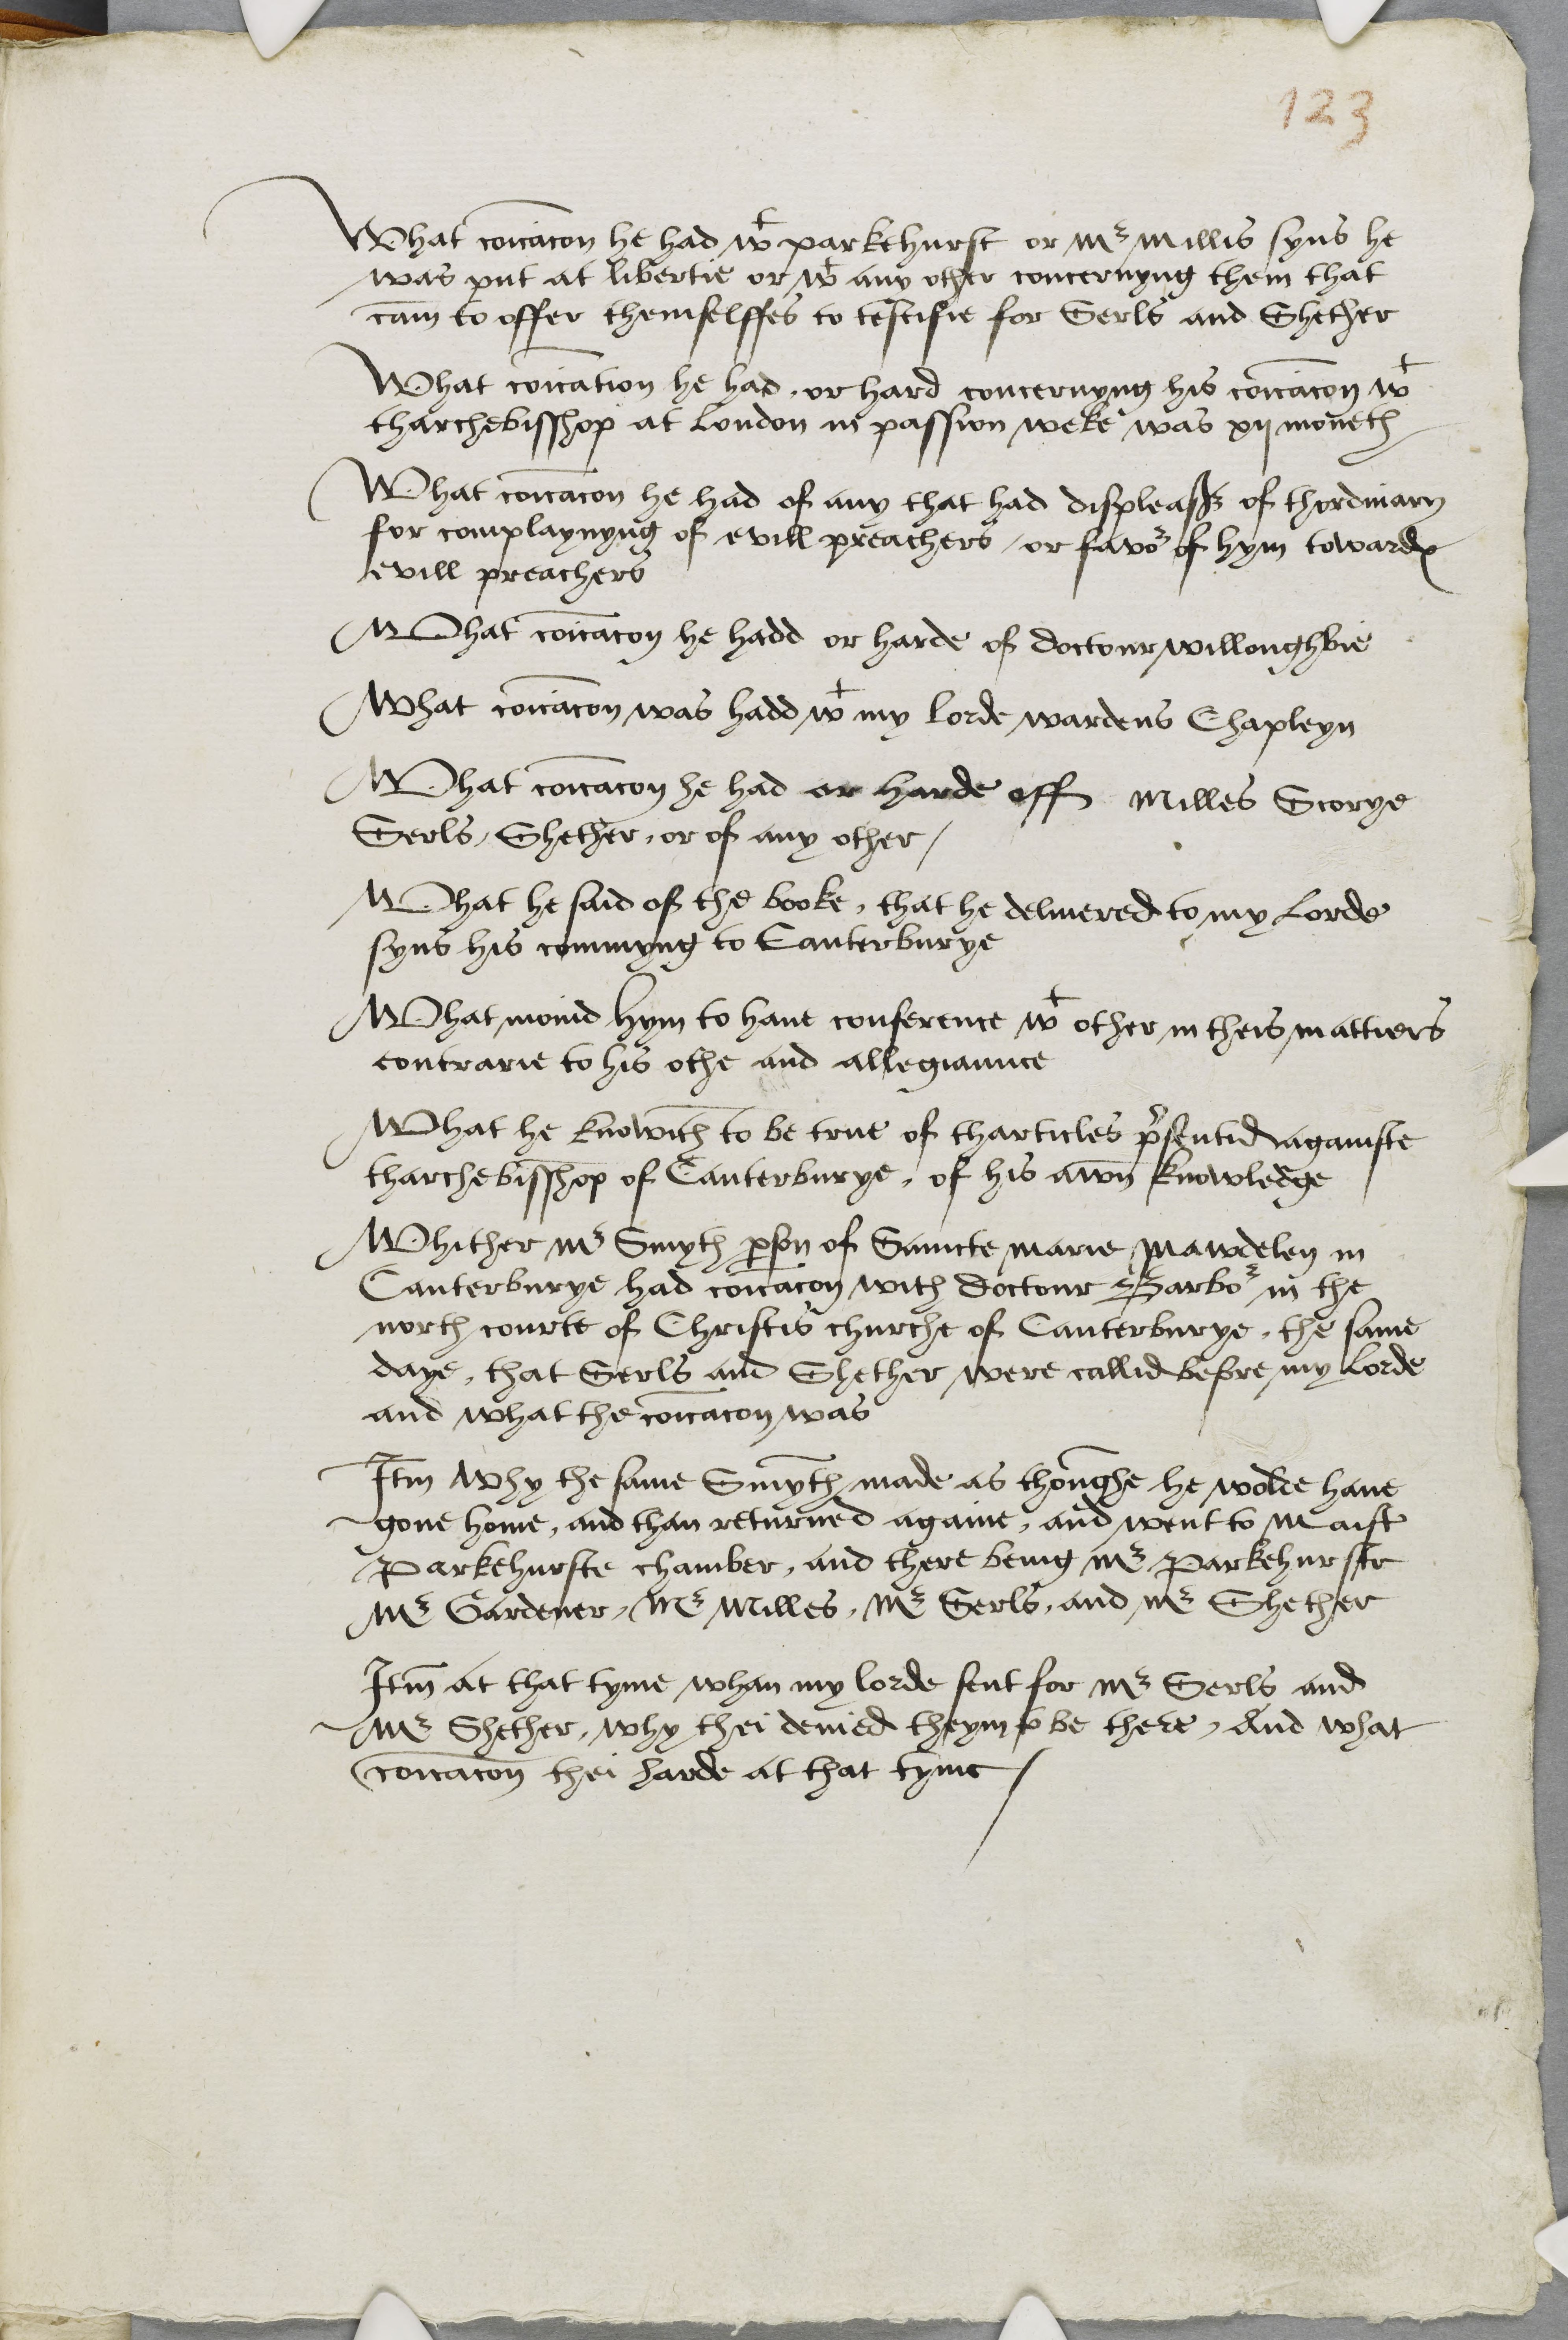 123
What coicacon he had wt parkehurst or Mr Millis syns he
was put at libertie or wt any other concernyng them that
cam to offer themselffes to testifie for Serls and Shether
What coication he had, or hard concernyng his coicacon wt
tharchebisshop at London in passion weke was xij moneth
What coicacon he had of any that had displeass of thordinary
for complaynyng of evill preachers / or favor of hym towardes
evill preachers
What coicacon he hadd or harde of doctour willoughbie
What coicacon was hadd wt my lorde wardens Chapleyn
What coicacon he had or harde off Milles Scorye
Serls, Shether, or of any other /
What he said of the booke, that he delivered to my Lorde
syns his commyng to Canterburye
What movid hym to have conference wt other in theis mattiers
contrarie to his othe and allegiaunce
What he knowith to be true of tharticles psentid againste
tharchebisshop of Canterburye, of his awn knowledge
Whither Mr Smyth pson of Saincte Marie Mawdelen in
Canterburye had coicacon with doctour Barbor in the
north courte of Christis churche of Canterburye, the same
daye, that Serls and Shether were callid before my Lorde
and what the coicacon was
Itm Why the same Smyth made as thoughe he wolde have
gone home, and than returned againe, and went to Maist
Parkehurste chamber, and there being Mr Parkehurste
Mr Gardener, Mr Milles, Mr Serls, and Mr Shether
Itm at that tyme whan my lorde sent for Mr Serls and
Mr Shether, why thei denied theym to be there, And what
coicacon thei harde at that tyme /